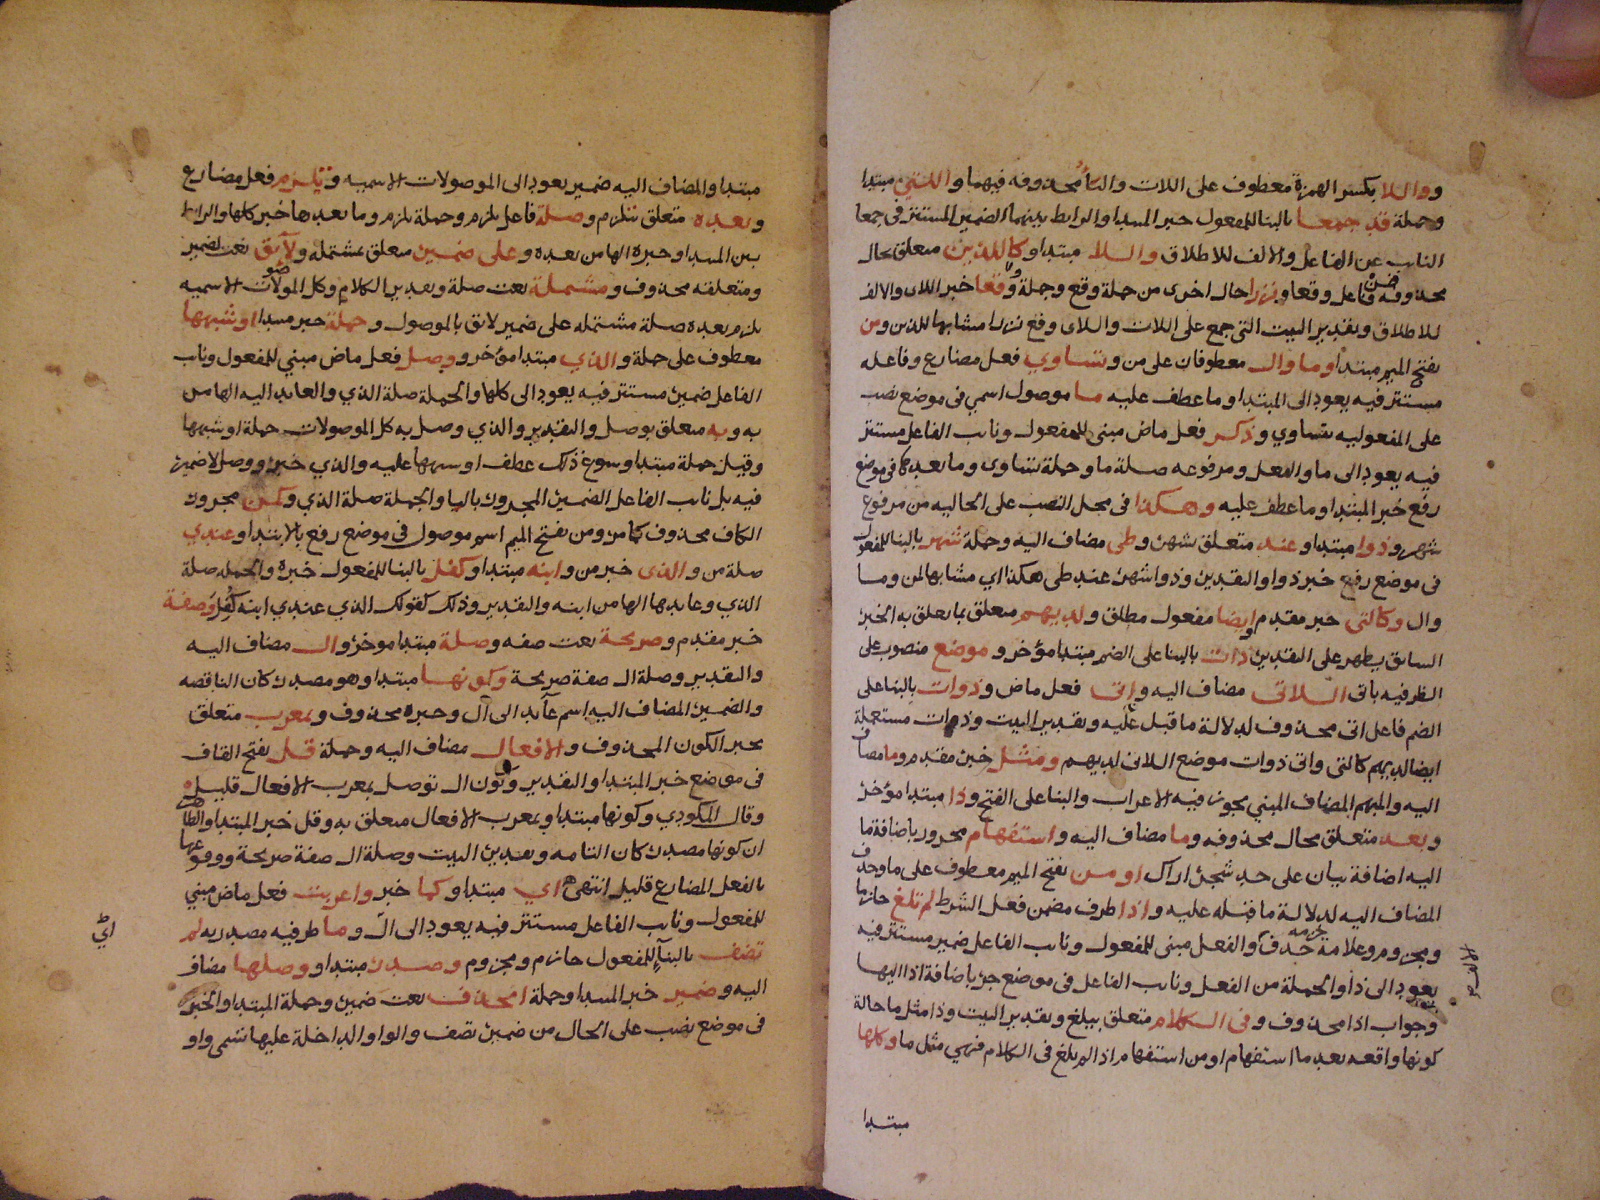 و واللا بكسر الهمزة معطوف على اللات والتا محذوفه فيهما واللتي مبتدا
وجملة قد جمعا بالبنا للمفعول خبر المبتدا والرابط بينهما الضمير المستتر في جمعا
النايب عن الفاعل والالف للاطلاق واللا مبتدا وكاللذين متعلق بحال
محذوفه من فاعل وقعا ونزرا حال اخرى من جملة وقع وجملة وقعا خبر اللاى والالف
للاطلاق وتقدير البيت التي جمع على اللات واللاى وقع نزرا مشابها للذين ومن
بفتح الميم مبتدا وما وال معطوفان على من وتساوي فعل مضارع وفاعله
مستتر فيه يعود الى المبتدا وما عطف عليه ما موصول اسمي في موضع نصب
على المفعوليه بتساوي وذكر فعل ماض مبني للمفعول ونايب الفاعل مستتر
فيه يعود الى ما والفعل ومرفوعه صلة ما وجملة تساوى وما بعدها في موضع
رفع خبر المبتدا وما عطف عليه وهكذا في محل النصب على الحاليه من مرفوع
شهر وذوا مبتدا وعند متعلق بشهر وطي مضاف اليه وجملة شهر بالبنا للمفعول
في موضع رفع خبر ذوا والتقدير وذوا شهر عند طي هكذا اي مشابها لمن وما
وال وكالتي خبر مقدم وايضا مفعول مطلق ولديهم متعلق بما تعلق به الخبر
السابق يظهر على التقدير ذات بالبنا على الضم مبتدا مؤخر وموضع منصوب على
الظرفيه باتى اللاتى مضاف اليه واتى فعل ماض وذوات بالبنا على
الضم فاعل اتى محذوف لدلالة ما قبل عليه وتقدير البيت وذات مستعملة
ايضا لديهم كالتي واتى ذوات موضع اللاتى لديهم ومثل خبر مقدم وما مضاف
اليه والمبهم المضاف المبني يجوز فيه الاعراب والبنا على الفتح وذا مبتدا مؤخر
وبعد متعلق بحال محذوفه وما مضاف اليه واستفهام مجرور باضافة ما
اليه اضافة بيان على حد شجر اراك او من بفتح الميم معطوف على ما وحذف
المضاف اليه لدلالة ما قبله عليه واذا ظرف مضمن فعل الشرط لم تلغ جازما
ومجزوم وعلامة جزمه حذف آ والفعل مبني للمفعول ونايب الفاعل ضمير مستتر فيه
يعود الى ذا والجملة من الفعل ونايب الفاعل في موضع جر باضافة اذا اليها
وجواب اذا محذوف وفى الكلام متعلق بيلغ وتقدير البيت وذا مثل ما حالة
كونها واقعه بعد ما استفهام او من استفهام اذا لم يلغ في الكلام فهي مثل ما وكلها
مبتدا
مبتدا والمضاف اليه ضمير يعود الى الموصولات الاسميه ويلزم فعل مضارع
وبعده متعلق بتلزم وصلة فاعل يلزم وجملة يلزم وما بعدها خبر كلها والرابط
بين المبتدا وخبره الها من بعده وعلى ضمير متعلق بمشتمله ولايق نعت لضمير
ومتعلقه محذوف ومشتملة نعت صلة وتقدير الكلام وكل الموصولات الاسميه
يلزم بعده صلة مشتمله على ضمير لايق بالموصول وجملة خبر مبتدا او شبهها
معطوف على جملة والذي مبتدا مؤخر ووصل فعل ماض مبني للمفعول ونايب
الفاعل ضمير مستتر فيه يعود الى كلها والجملة صلة الذي والعايد اليه الها من
به وبه متعلق بوصل والتقدير والذي وصل به كل الموصولات جملة او شبهها
وقيل جملة مبتدا وسوغ ذلك عطف او شبهها عليه والذي خبره ووصل لا ضمير
فيه بل نايب الفاعل الضمير المجرور بالبا والجملة صلة الذي وكمن مجرور
الكاف محذوف كما من ومن بفتح الميم اسم موصول في موضع رفع بالابتدا وعندي
صلة من والذى خبر من وابنه مبتدا وكفل بالبنا للمفعول خبره والجمله صلة
الذي وعايدها الها من ابنه والتقدير وذلك كقولك الذي عندي ابنه كفل وصفة
خبر مقدم وصريحة نعت صفه وصلة مبتدا موخر وال مضاف اليه
والتقدير وصلة ال صفة صريحة وكونها مبتدا وهو مصدر كان الناقصه
والضمير المضاف اليه اسم عايد الى ال وخبره محذوف وبمعرب متعلق
بخبر الكون المحذوف والافعال مضاف اليه وجملة قل بفتح القاف
في موضع خبر المبتدا والتقدير وكون ال توصل بمعرب الافعال قليل
وقال المكودي وكونها مبتدا وبمعرب الافعال متعلق به وقل خبر المبتدا والظاهر
ان كونها مصدر كان التامه وتقدير البيت وصلة ال صفة صريحة ووقوعها
بالفعل المضارع قليل انتهى اي مبتدا وكما خبر واعربت فعل ماض مبني
للمفعول ونايب الفاعل مستتر فيه يعود الى ال وما ظرفيه مصدريه لم
تضف بالبنا للمفعول جازم ومجزوم وصدر مبتدا ووصلها مضاف
اليه وضمير خبر المبتدا وجملة انحذف نعت ضمير وجملة المبتدا والخبر
في موضع نصب على الحال من ضمير تضف والواو الداخلة عليها تسمى واو
اي